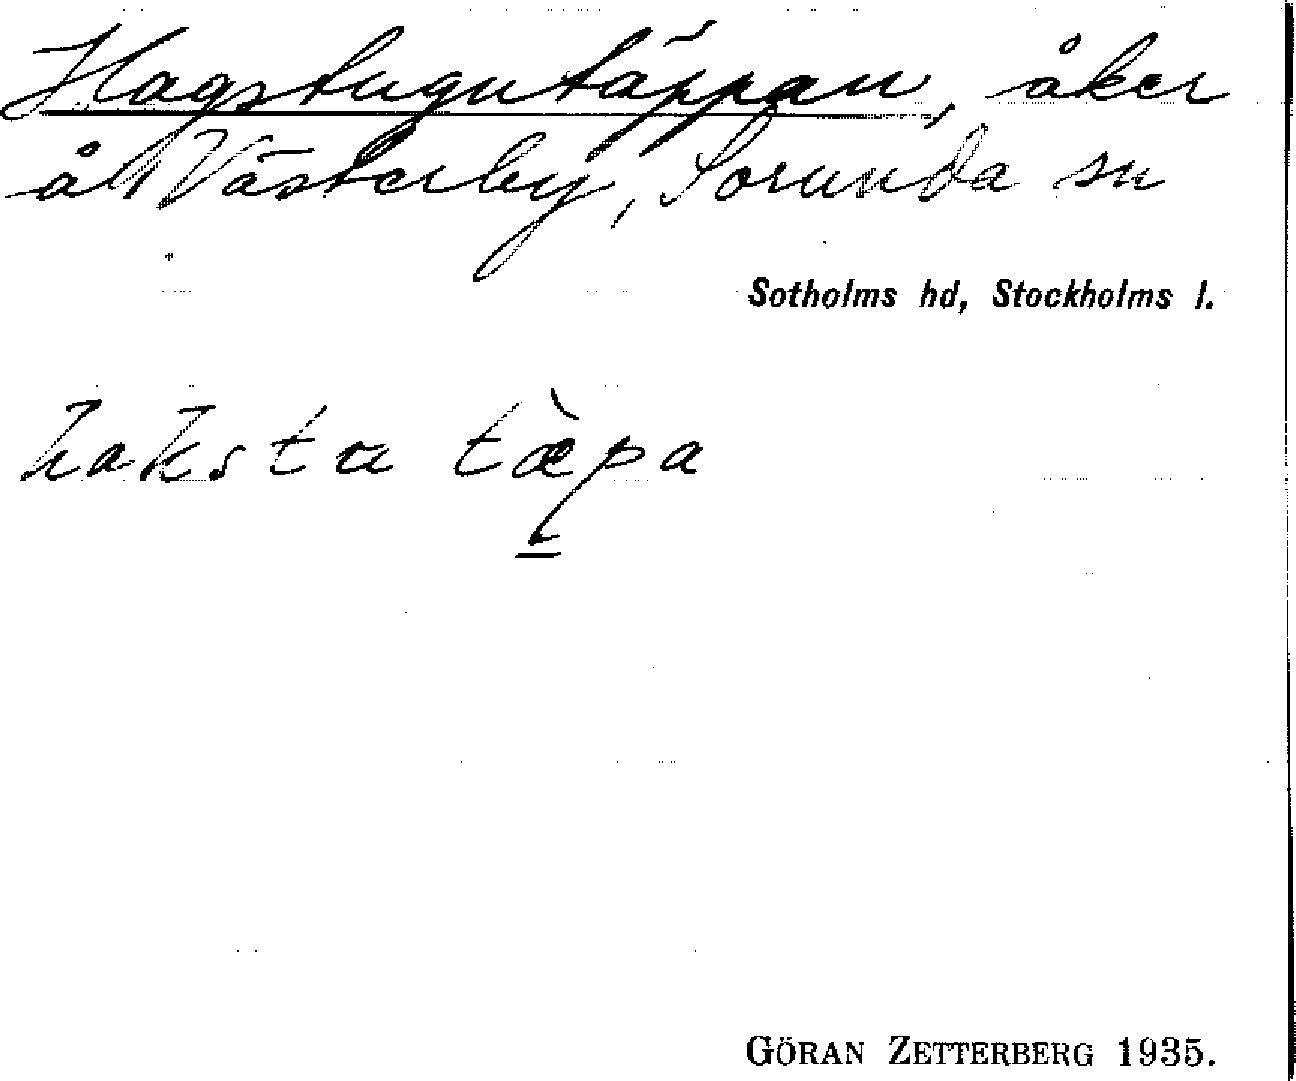 Hagstugutäppan, åker
åt Västerby, Sorunda sn
Sotholms hd, Stockholms l.
haksta tæ̀pa
GÖRAN ZETTERBERG 1935.